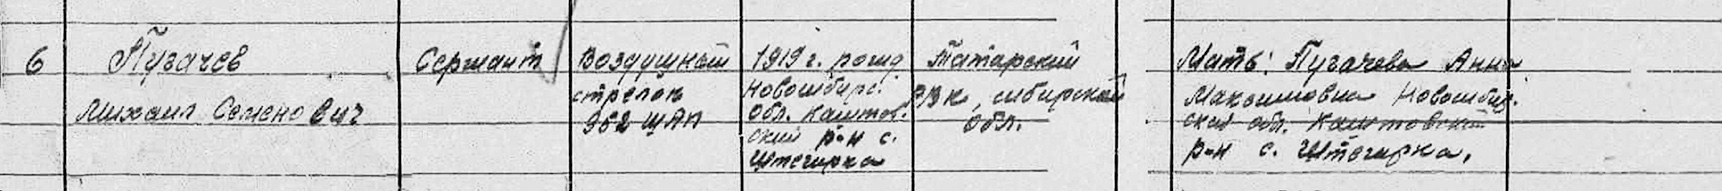 6
Пугачев
Михаил Семенович
Сержант
Воздушный
стрелок
962 ШАП
1919 г. рожд
Новосибирс.
обл. Каштов.
ский р-н с.
Татарский
РВК, сибирской
обл.
Мать: Пугачева Анна
Максимовна Новосибир.
ской обл. Каштовский
р-н с.